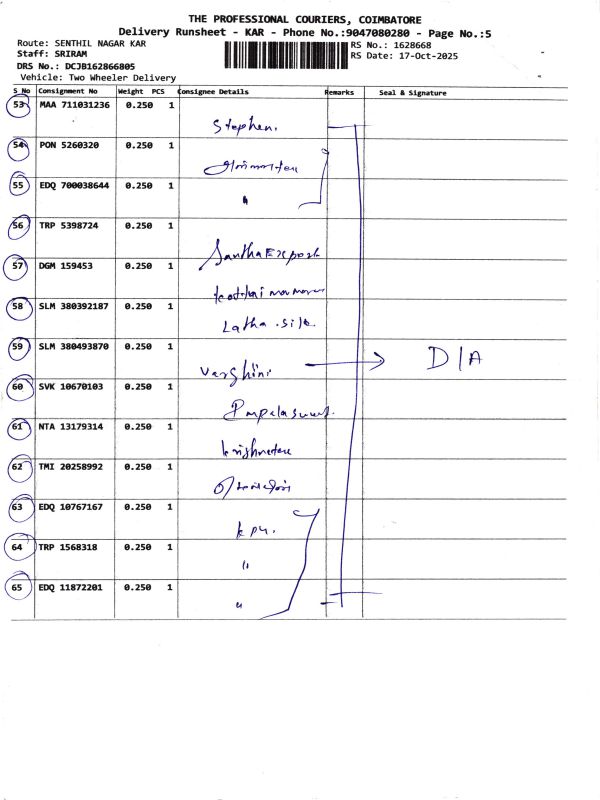 THE PROFESSIONAL COURIERS, COIMBATORE
Delivery Runsheet - KAR - Phone No.:9047080280 - Page No.:5
Route: SENTHIL NAGAR KAR RS No.: 1628668
Staff: SRIRAM RS Date: 17-Oct-2025
DRS No.: DCJB162866805
Vehicle: Two Wheeler Delivery
S No Consignment No Weight PCS Consignee Details Remarks Seal & Signature
53 MAA 711031236 0.250 1
Stephen.
54 PON 5260320 0.250 1
55 EDQ 700038644 0.250 1
"
56 TRP 5398724 0.250 1
Santha Export
57 DGM 159453 0.250 1
58 SLM 380392187 0.250 1
Latha . silk
59 SLM 380493870 0.250 1
Varshini D/A
60 SVK 10670103 0.250 1
61 NTA 13179314 0.250 1
62 TMI 20258992 0.250 1
63 EDQ 10767167 0.250 1
64 TRP 1568318 0.250 1
"
65 EDQ 11872201 0.250 1
"